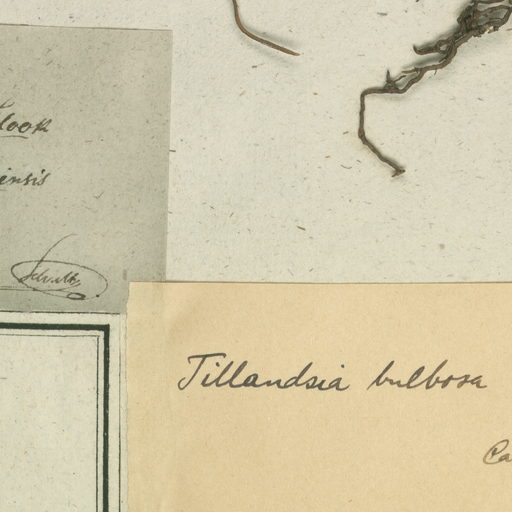 Hook
ensis
Tillandsia bulbosa
Ca